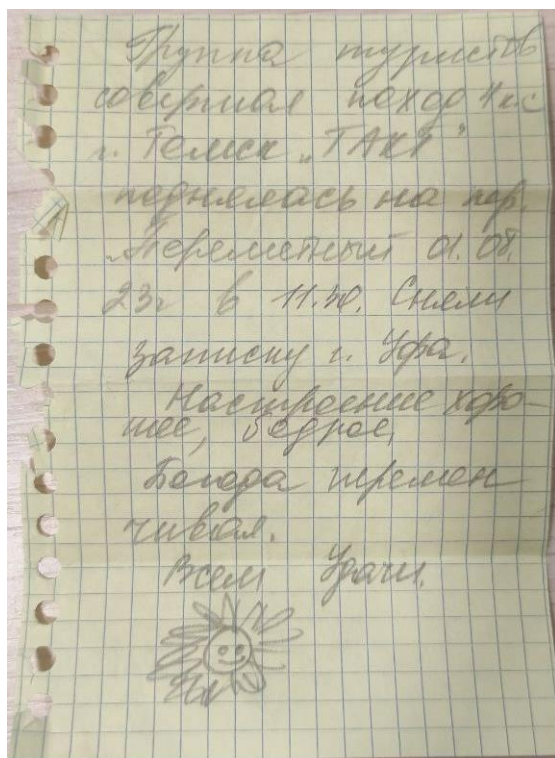 Группа туристов
совершая поход 4 к.с
г. Томск „ТАКТ"
поднялась на пер.
Переметный 01.08.
23г в 11.30. Сняли
записку г. Уфа.
Настроение хоро-
шее, бодрое,
Погода перемен
чивая.
Всем Удачи.